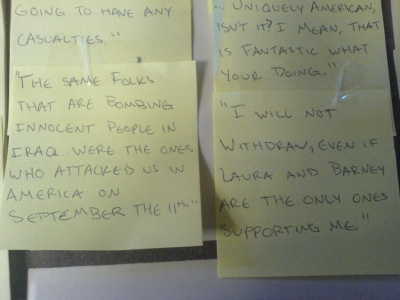 GOING TO HAVE ANY
CASUALTIES."
"THE SAME FOLKS
THAT ARE BOMBING
INNOCENT PEOPLE IN
IRAQ WERE THE ONES
WHO ATTACKED US IN
AMERICA ON
SEPTEMBER THE 11TH"
... UNIQUELY AMERICAN,
ISN'T IT? I MEAN, THAT
IS FANTASTIC WHAT
YOUR DOING."
"I WILL NOT
WITHDRAW, EVEN IF
LAURA AND BARNEY
ARE THE ONLY ONES
SUPPORTING ME."